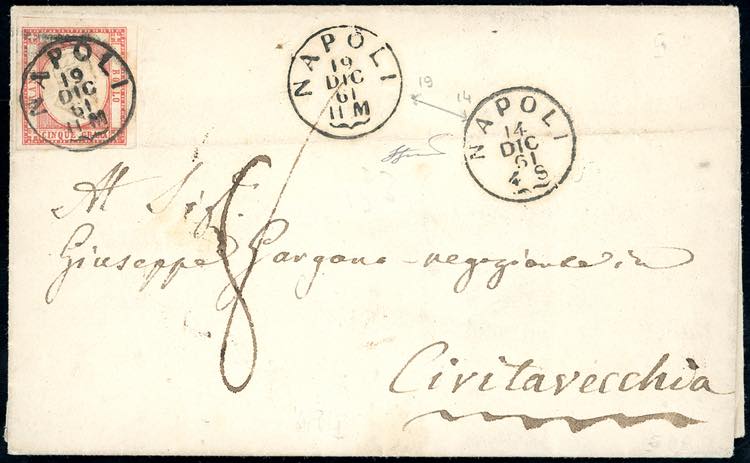 FRANCO
BOLLO
CINQUE GRANA
NAPOLI
19
DIC
61
11 M
NAPOLI
19
DIC
61
11 M
19
14
NAPOLI
14
DIC
61
4 S
8
Al Sigr.
Giuseppe Gargano negoziante in
Civitavecchia